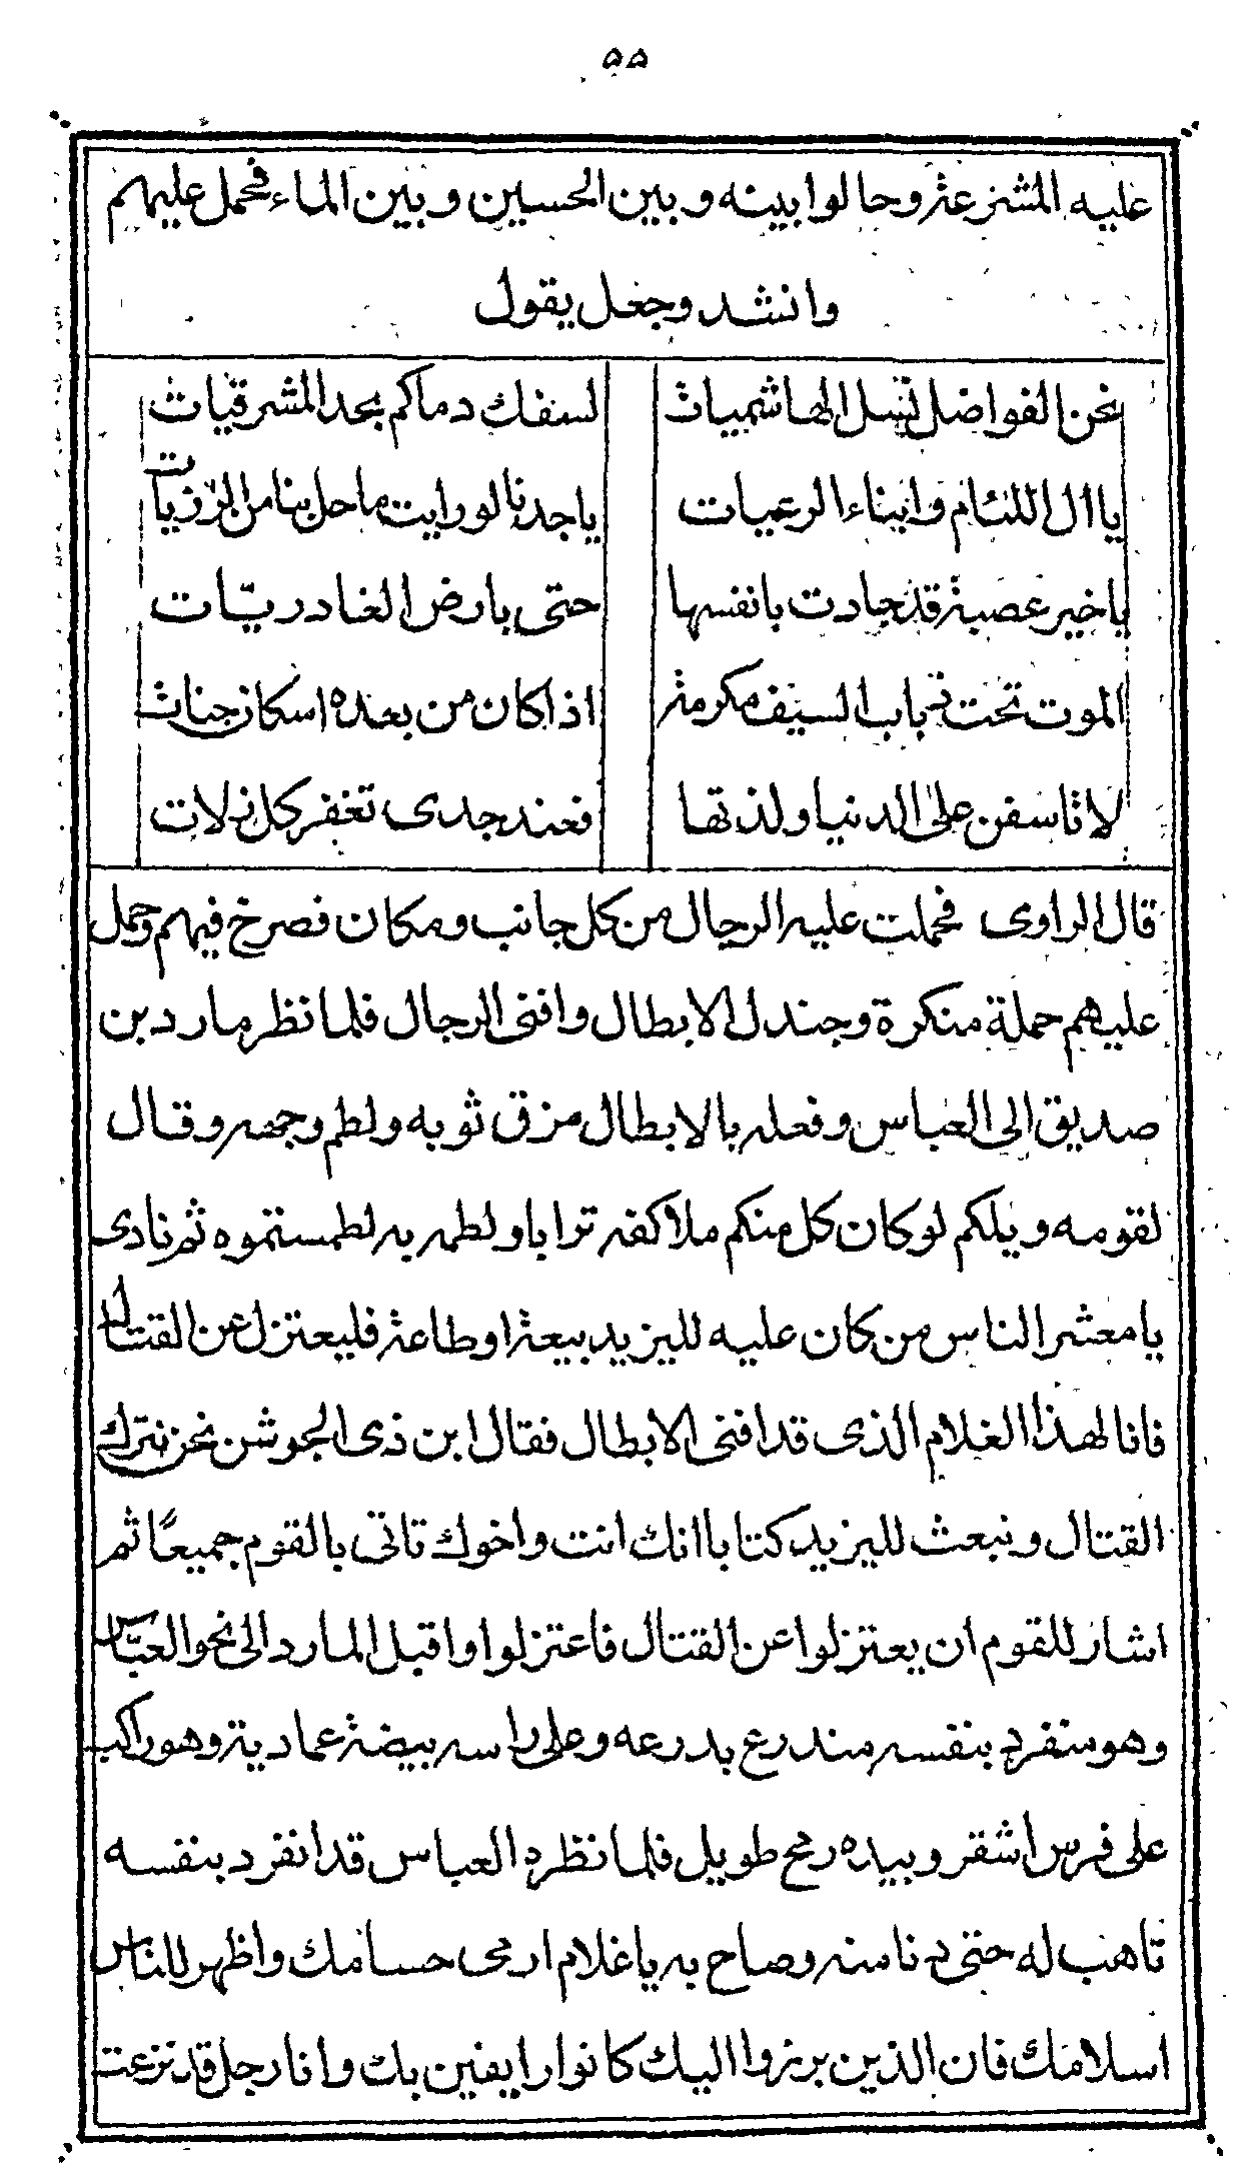 ٥٥
عليه المشرعة وحالوا بينه وبين الحسين وبين الماء فحمل عليهم
وانشد وجعل يقول
نحن الفواضل نسل الهاشميات لسفك دماكم بحد المشرقيات
ياال اللئام وابناء الرعيات ياجدنا لو رايت ماحل بنا من الرزيات
ياخير عصبة قد جادت بانفسها حتى بارض الغادريّات
الموت تحت ذباب السيف مكرمة اذا كان من بعده اسكان جنات
لا تاسفن على الدنيا ولذتها فعند جدى تغفر كل زلات
قال الراوى فحملت عليه الرجال من كل جانب ومكان فصرخ فيهم وحمل
عليهم حملة منكرة وجندل الابطال وافنى الرجال فلما نظر مارد بن
صديق الى العباس وفعله بالابطال مزق ثوبه ولطم وجهه وقال
لقومه ويلكم لو كان كل منكم ملا كفه ترابا ولطمه به لطمستموه ثم نادى
يا معشر الناس من كان عليه لليزيد بيعة او طاعة فليعتزل عن القتال
فانا لهذا الغلام الذى قد افنى الابطال فقال ابن ذى الجوشن نحن نترك
القتال ونبعث لليزيد كتابا انك انت واخوك تاتى بالقوم جميعًا ثم
اشار للقوم ان يعتزلوا عن القتال فاعتزلوا واقبل المارد الى نحو العبّاس
وهو منفرد بنفسه مندرع بدرعه وعلى راسه بيضة عمادية وهو راكب
على فرس اشقر وبيده رمح طويل فلما نظر العباس قد انفرد بنفسه
تاهب له حتى دنا منه وصاح به يا غلام ارمى حسامك واظهر للناس
اسلامك فان الذين برزوا اليك كانوا رايفين بك وانا رجل قد نزعت